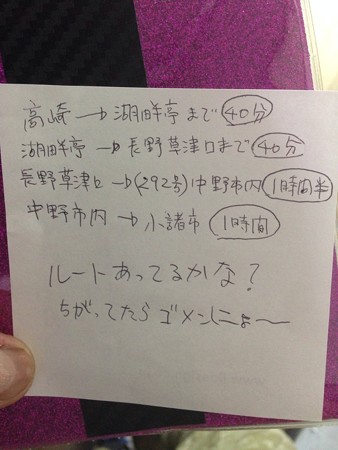 高崎→湖畔亭まで 40分
湖畔亭→長野草津口まで 40分
長野草津口→(292号)中野市内 1時間半
中野市内→小諸市 1時間
ルートあってるかな?
ちがってたらゴメンにょ〜